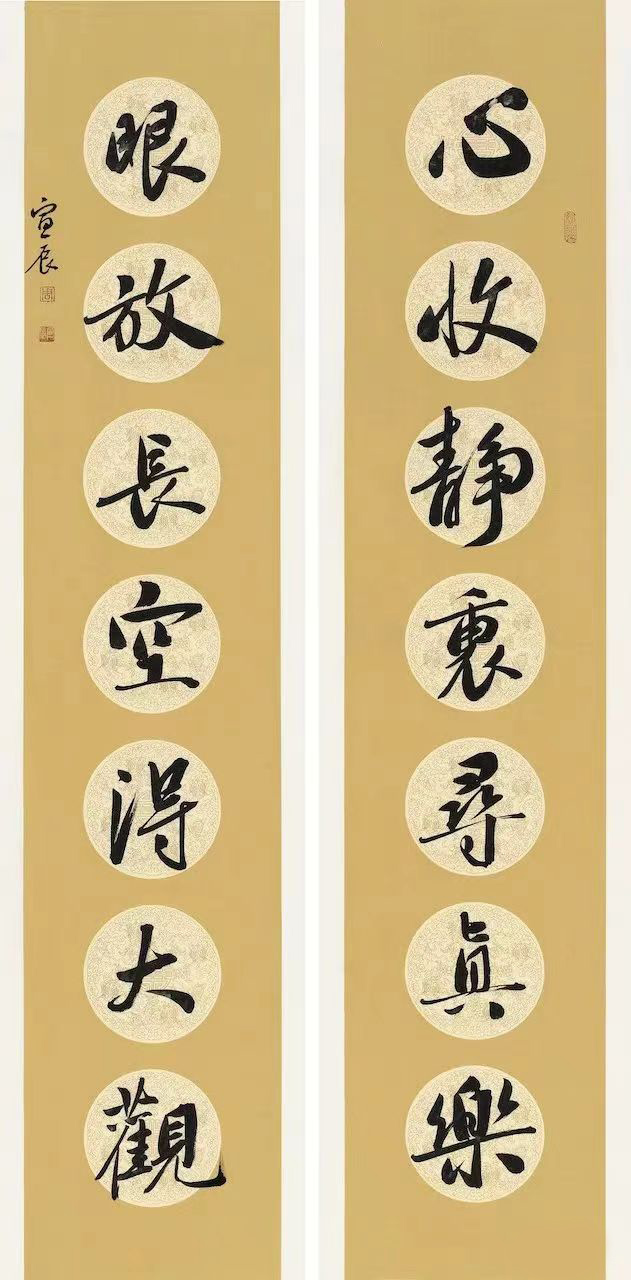 心收静裏尋真樂
眼放長空得大觀
宣辰